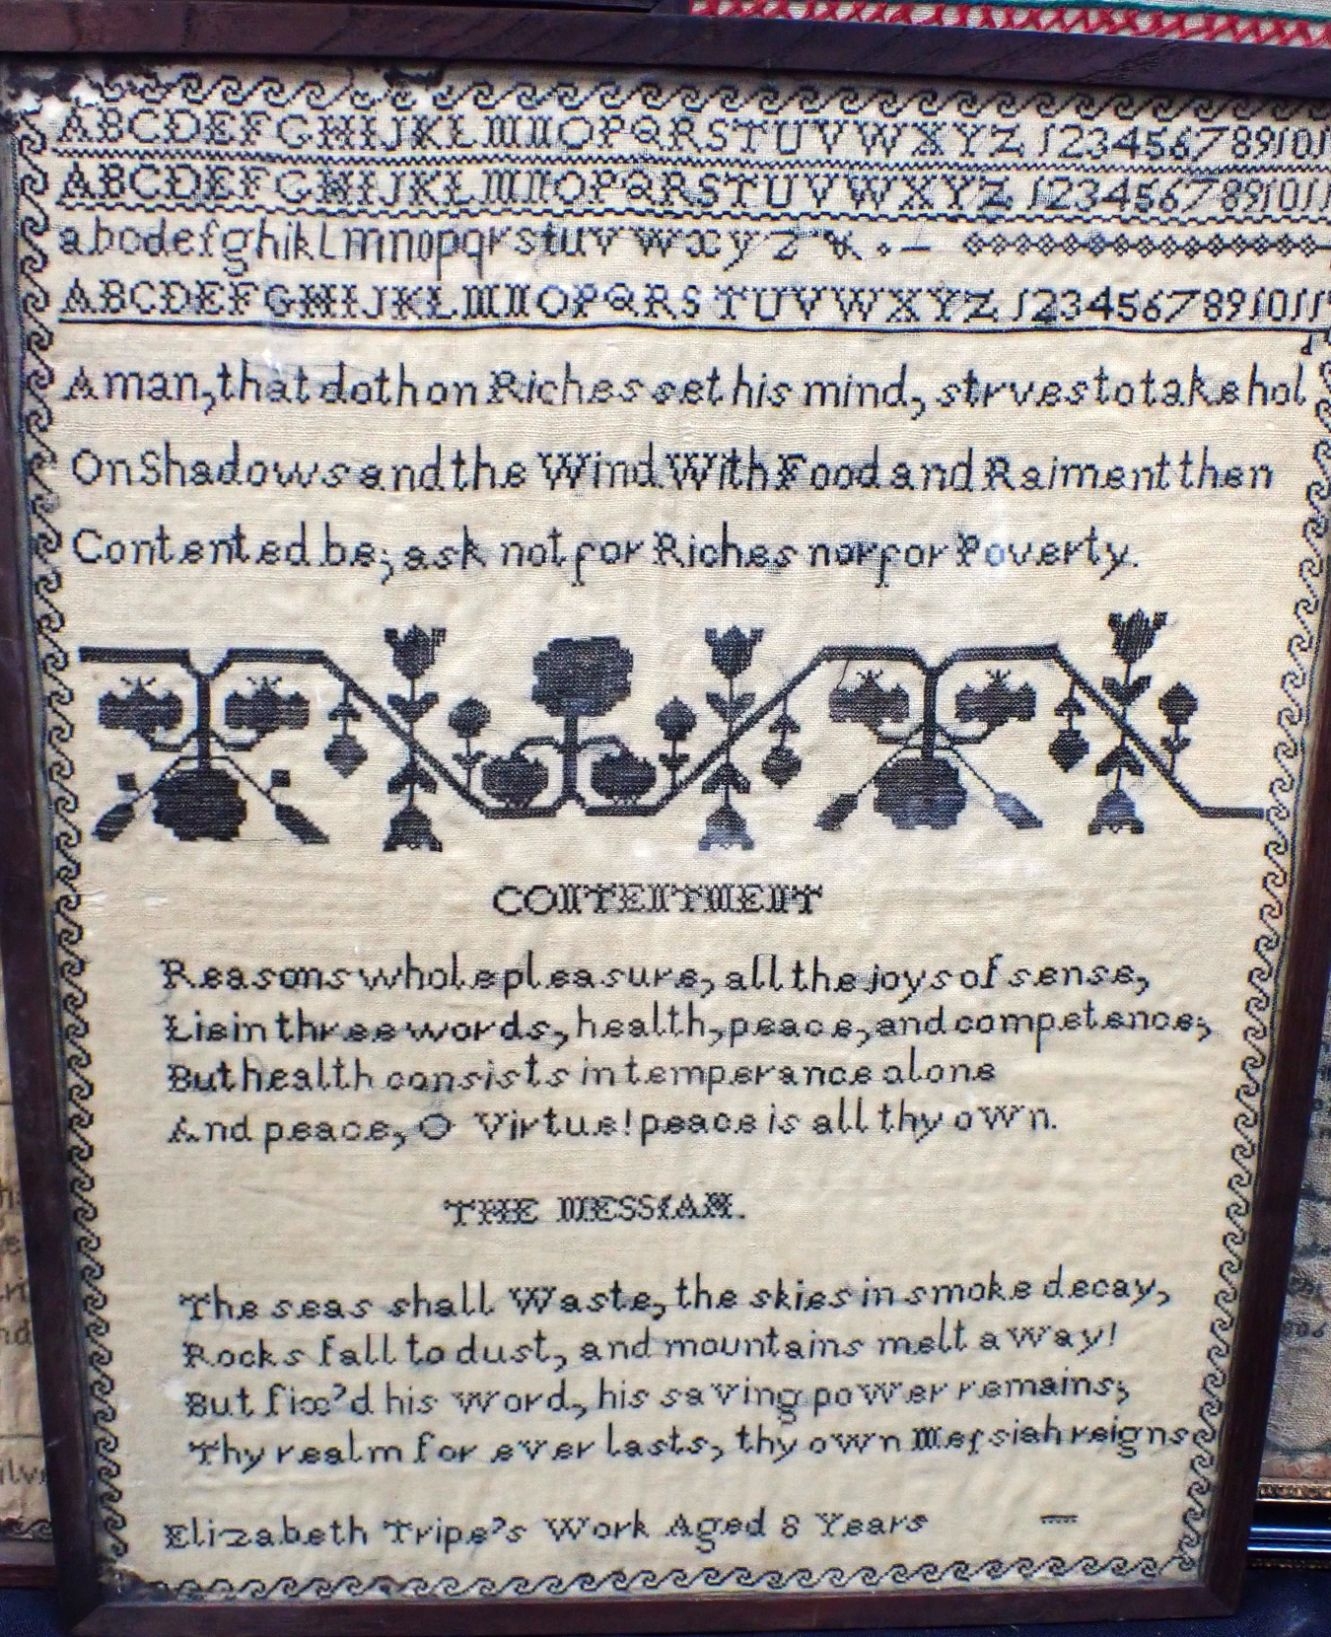 ABCDEFGHIJKLMNOPQRSTUVWXYZ 1234567891011
ABCDEFGHIJKLMNOPQRSTUVWXYZ 1234567891011
abcdefghiklmnopqrstuvwxyz & . –
ABCDEFGHIJKLMNOPQRSTUVWXYZ 1234567891011
d
A man, that doth on Riches set his mind, strves to take hol
On Shadows and the Wind With Food and Raiment then
Contented be; ask not for Riches nor for Poverty.
CONTENTMENT
Reasons whole pleasure, all the joys of sense,
Lie in three words, health, peace, and competence;
But health consists in temperance alone
And peace, O Virtue! peace is all thy own.
THE MESSIAH.
The seas shall Waste, the skies in smoke decay,
Rocks fall to dust, and mountains melt away!
But fix'd his word, his saving power remains;
Thy realm for ever lasts, thy own Meſsiah reigns
Elizabeth Tripe's Work Aged 8 Years